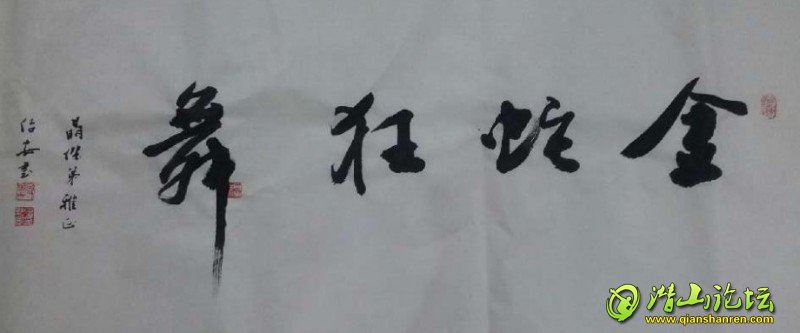 金蛇狂舞
弟雅正
书
潜山论坛
www.qianshanren.com